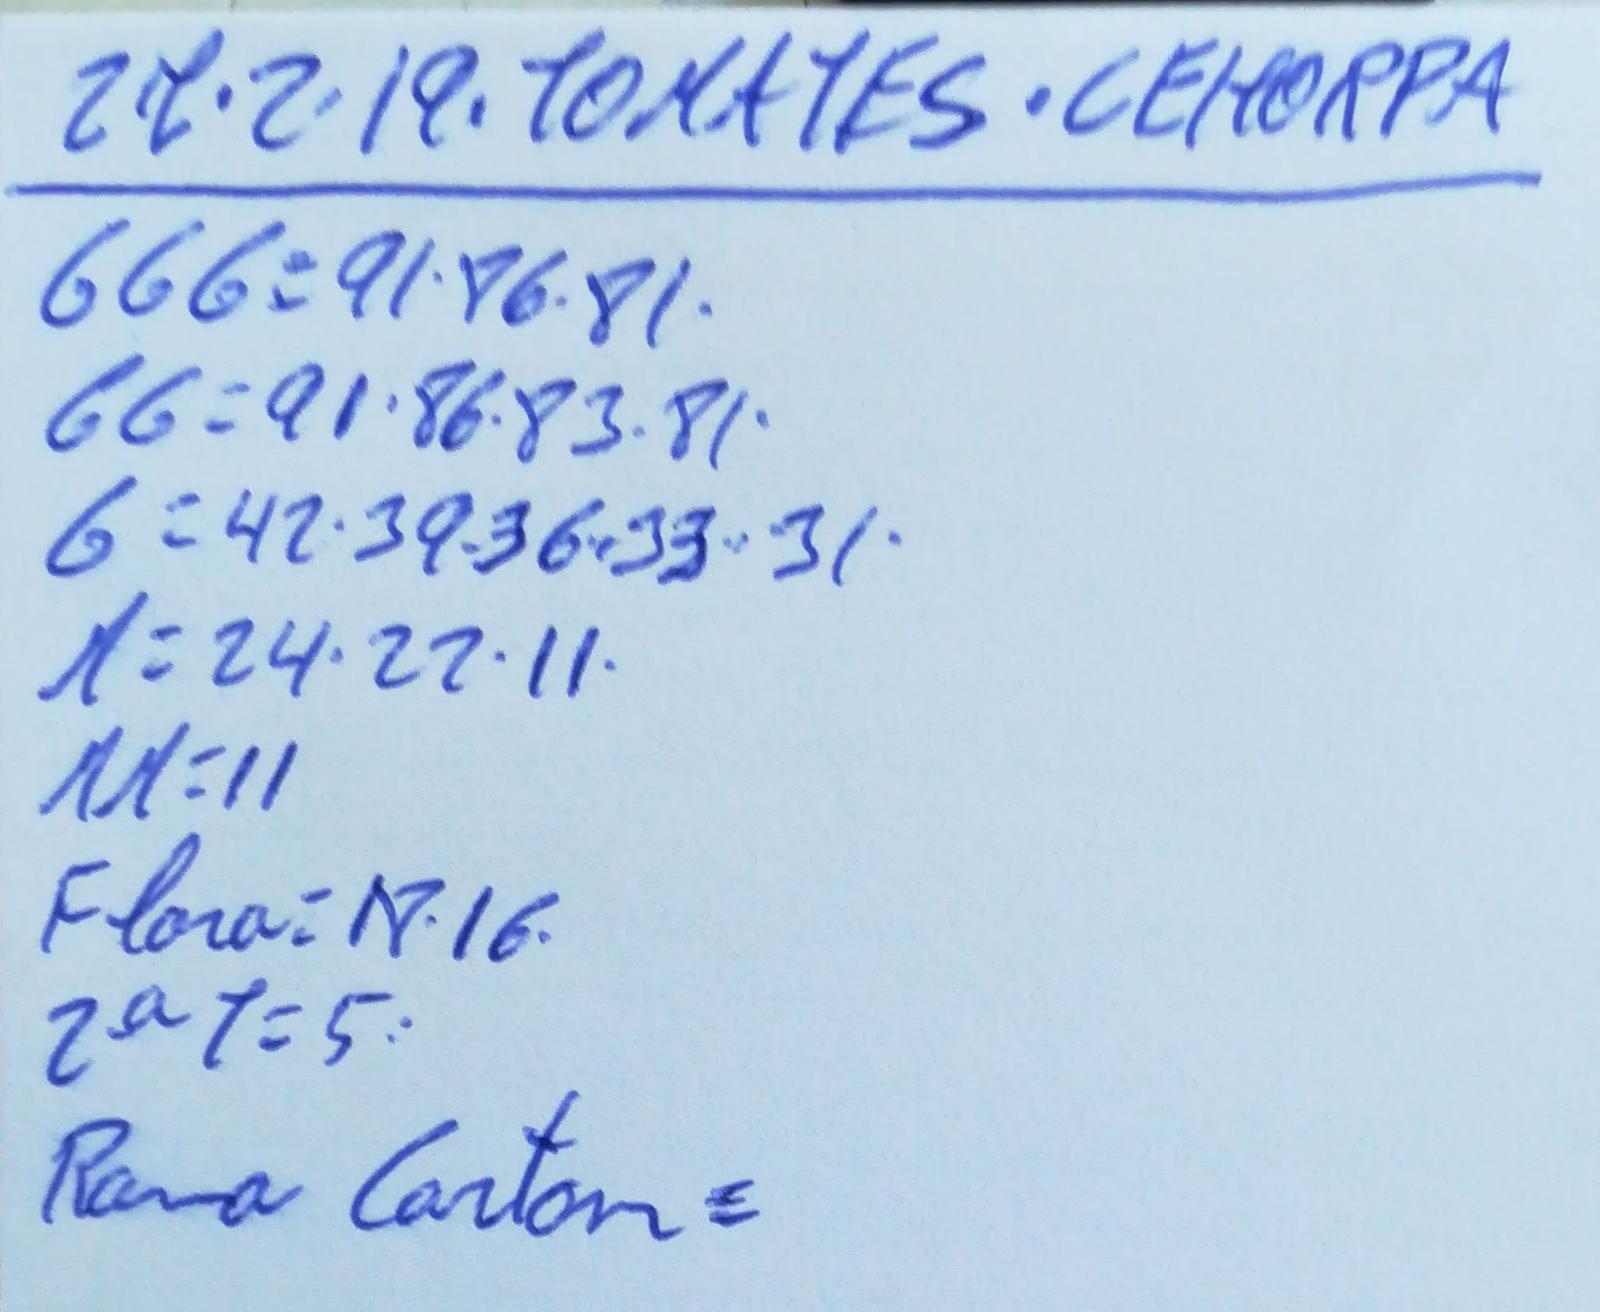 27.2.19. TOMATES. CEHORPA
GGG=91.86.81.
GG=91.86.83.81.
G=42.39.36.33.31.
M=24.22.11.
MM=11
Flora=18.16.
2ª T=5.
Rama Carton =